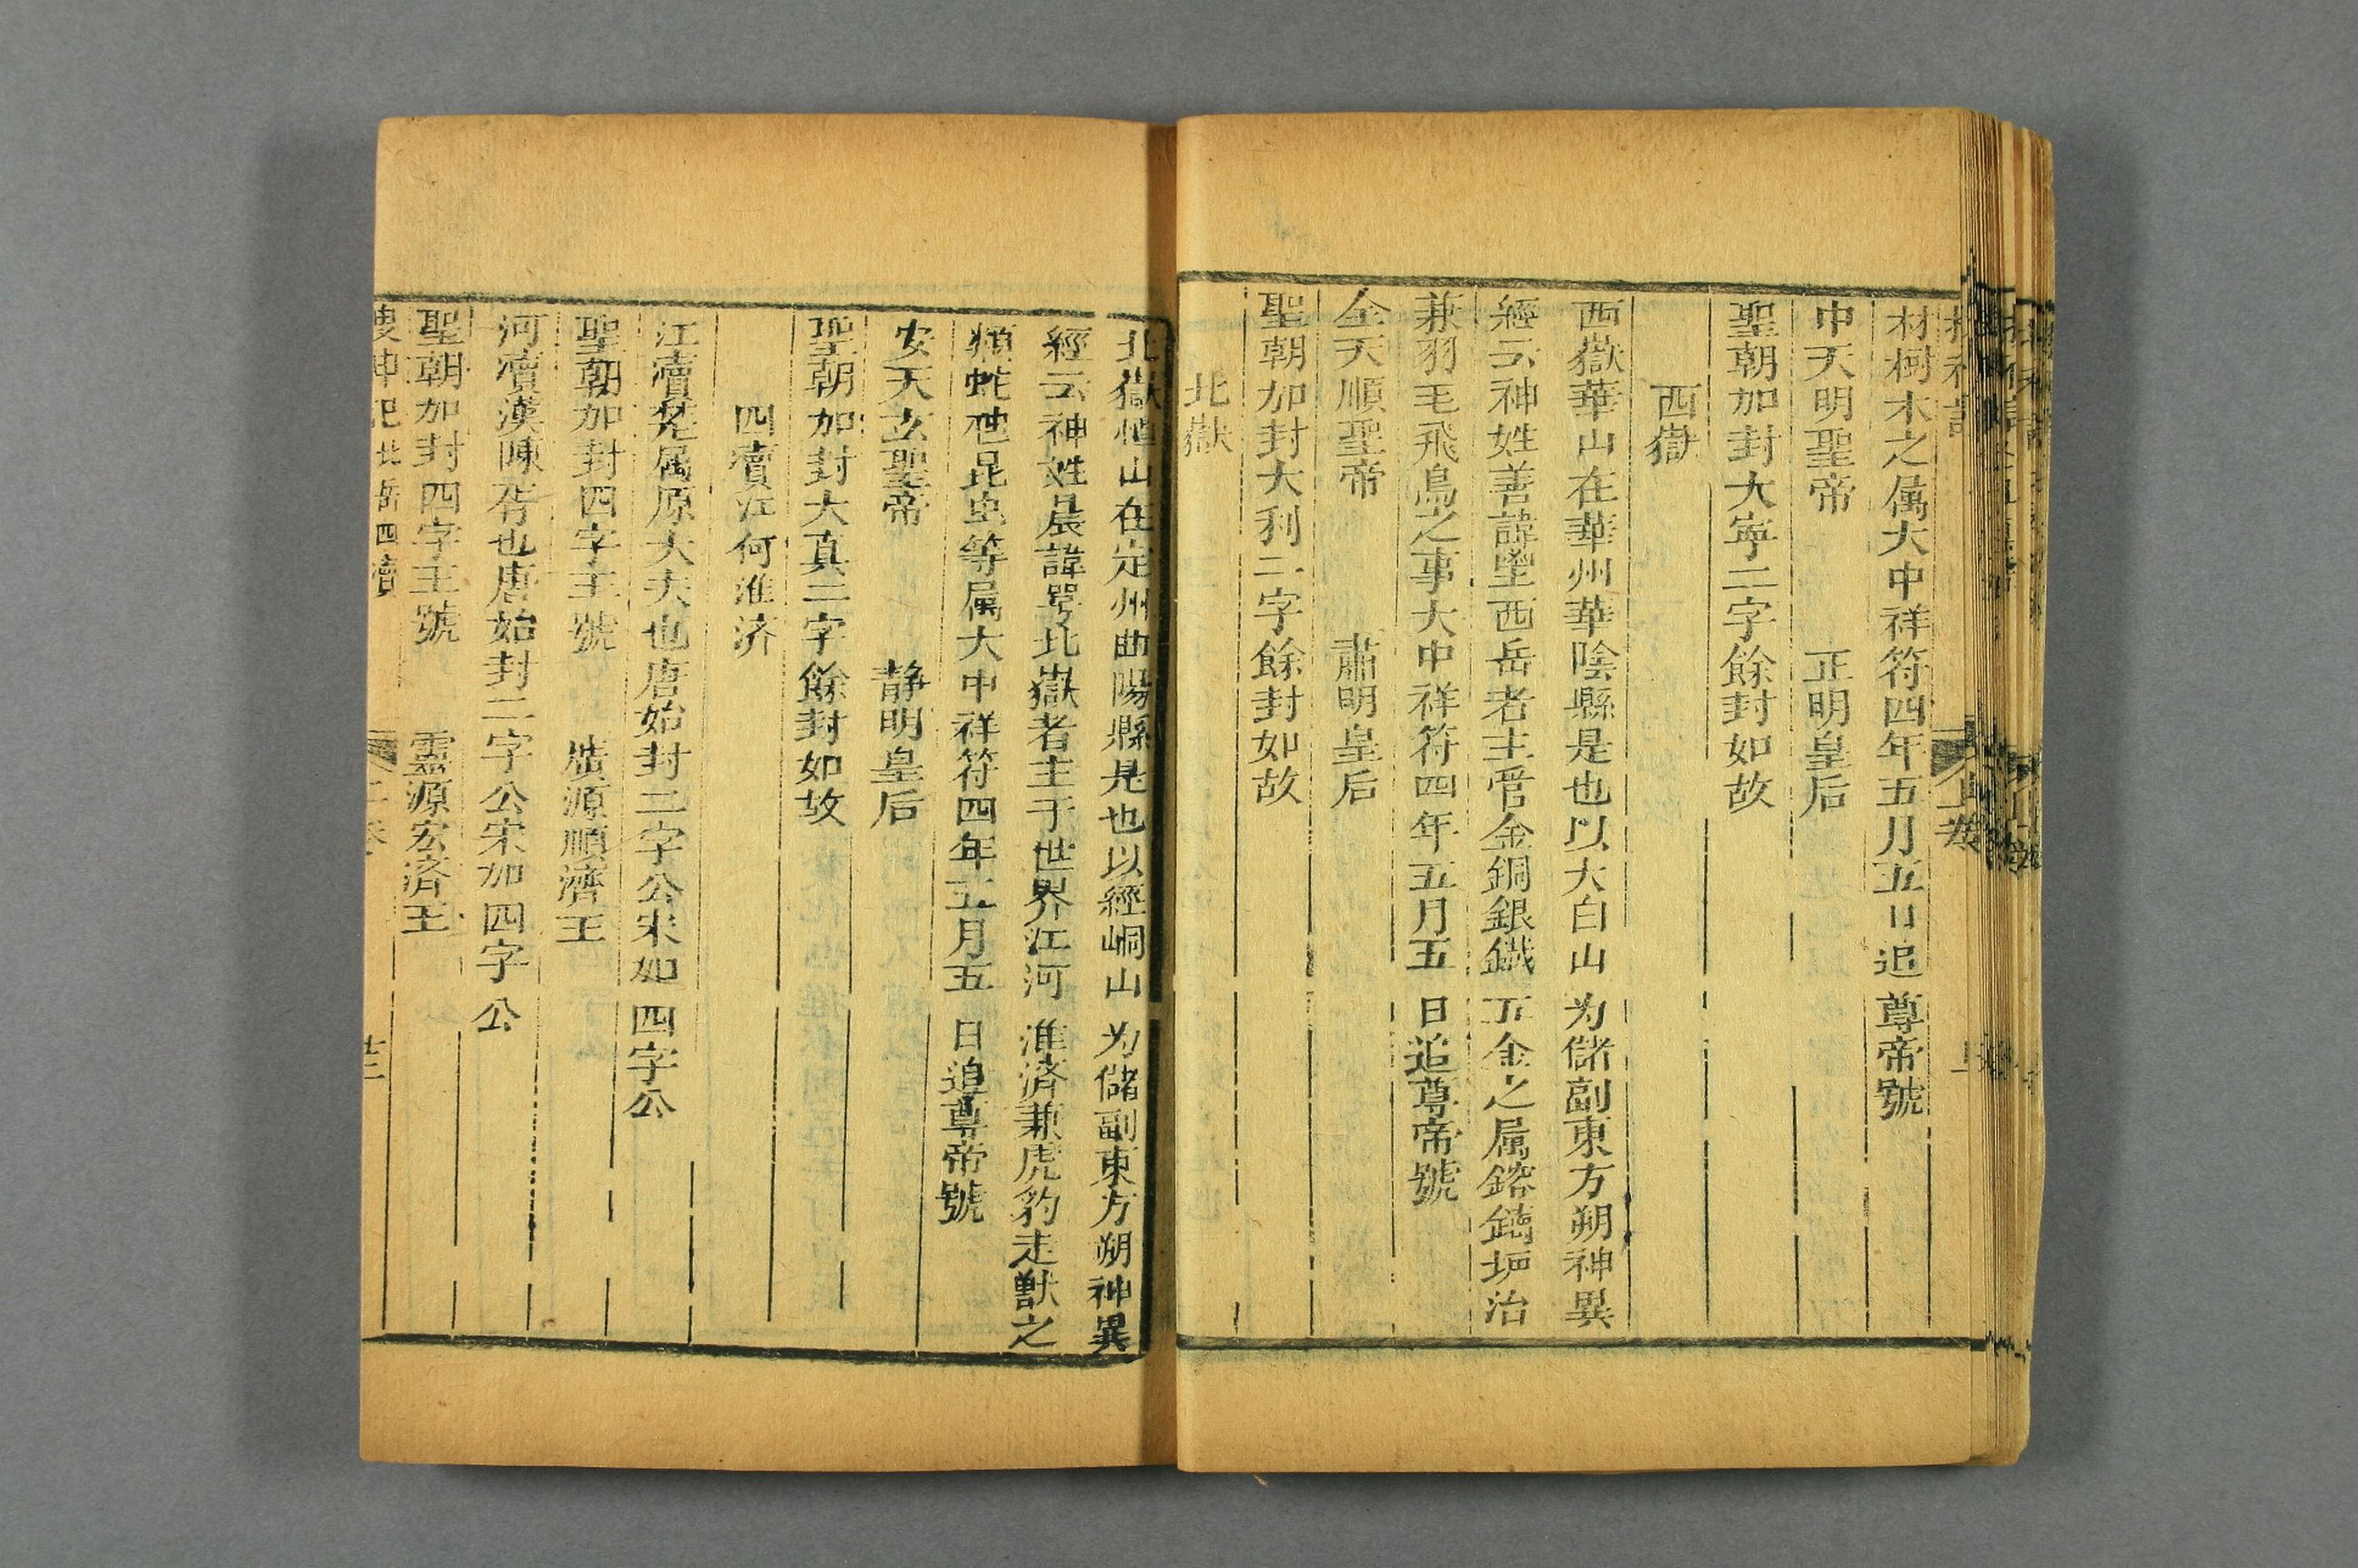 材樹木之属大中祥符四年五月五日追尊帝號
中天明聖帝 正明皇后
聖朝加封大寧二字餘封如故
西嶽
西嶽華山在華州華陰縣是也以大白山为儲副東方朔神異
經云神姓善諱壟西岳者主管金銅銀鐵五金之属鎔鑄坑治
兼羽毛飛鳥之事大中祥符四年五月五日追尊帝號
金天順聖帝 肅明皇后
聖朝加封大利二字餘封如故
北嶽
北嶽恒山在定州曲陽縣是也以經峒山为儲副東方朔神異
經云神姓晨諱㖾北嶽者主于世界江河淮済兼虎豹走獸之
類蛇虺昆虫等属大中祥符四年五月五日追尊帝號
安天玄聖帝 静明皇后
聖朝加封大真二字餘封如故
四瀆江何淮济
江瀆楚属原大夫也唐始封二字公宋如四字公
聖朝加封四字王號 廣源順濟王
河瀆漢陳胥也唐始封二字公宋加四字公
聖朝加封四字王號 靈源宏济王
搜神記 北岳四瀆 二卷 廿二